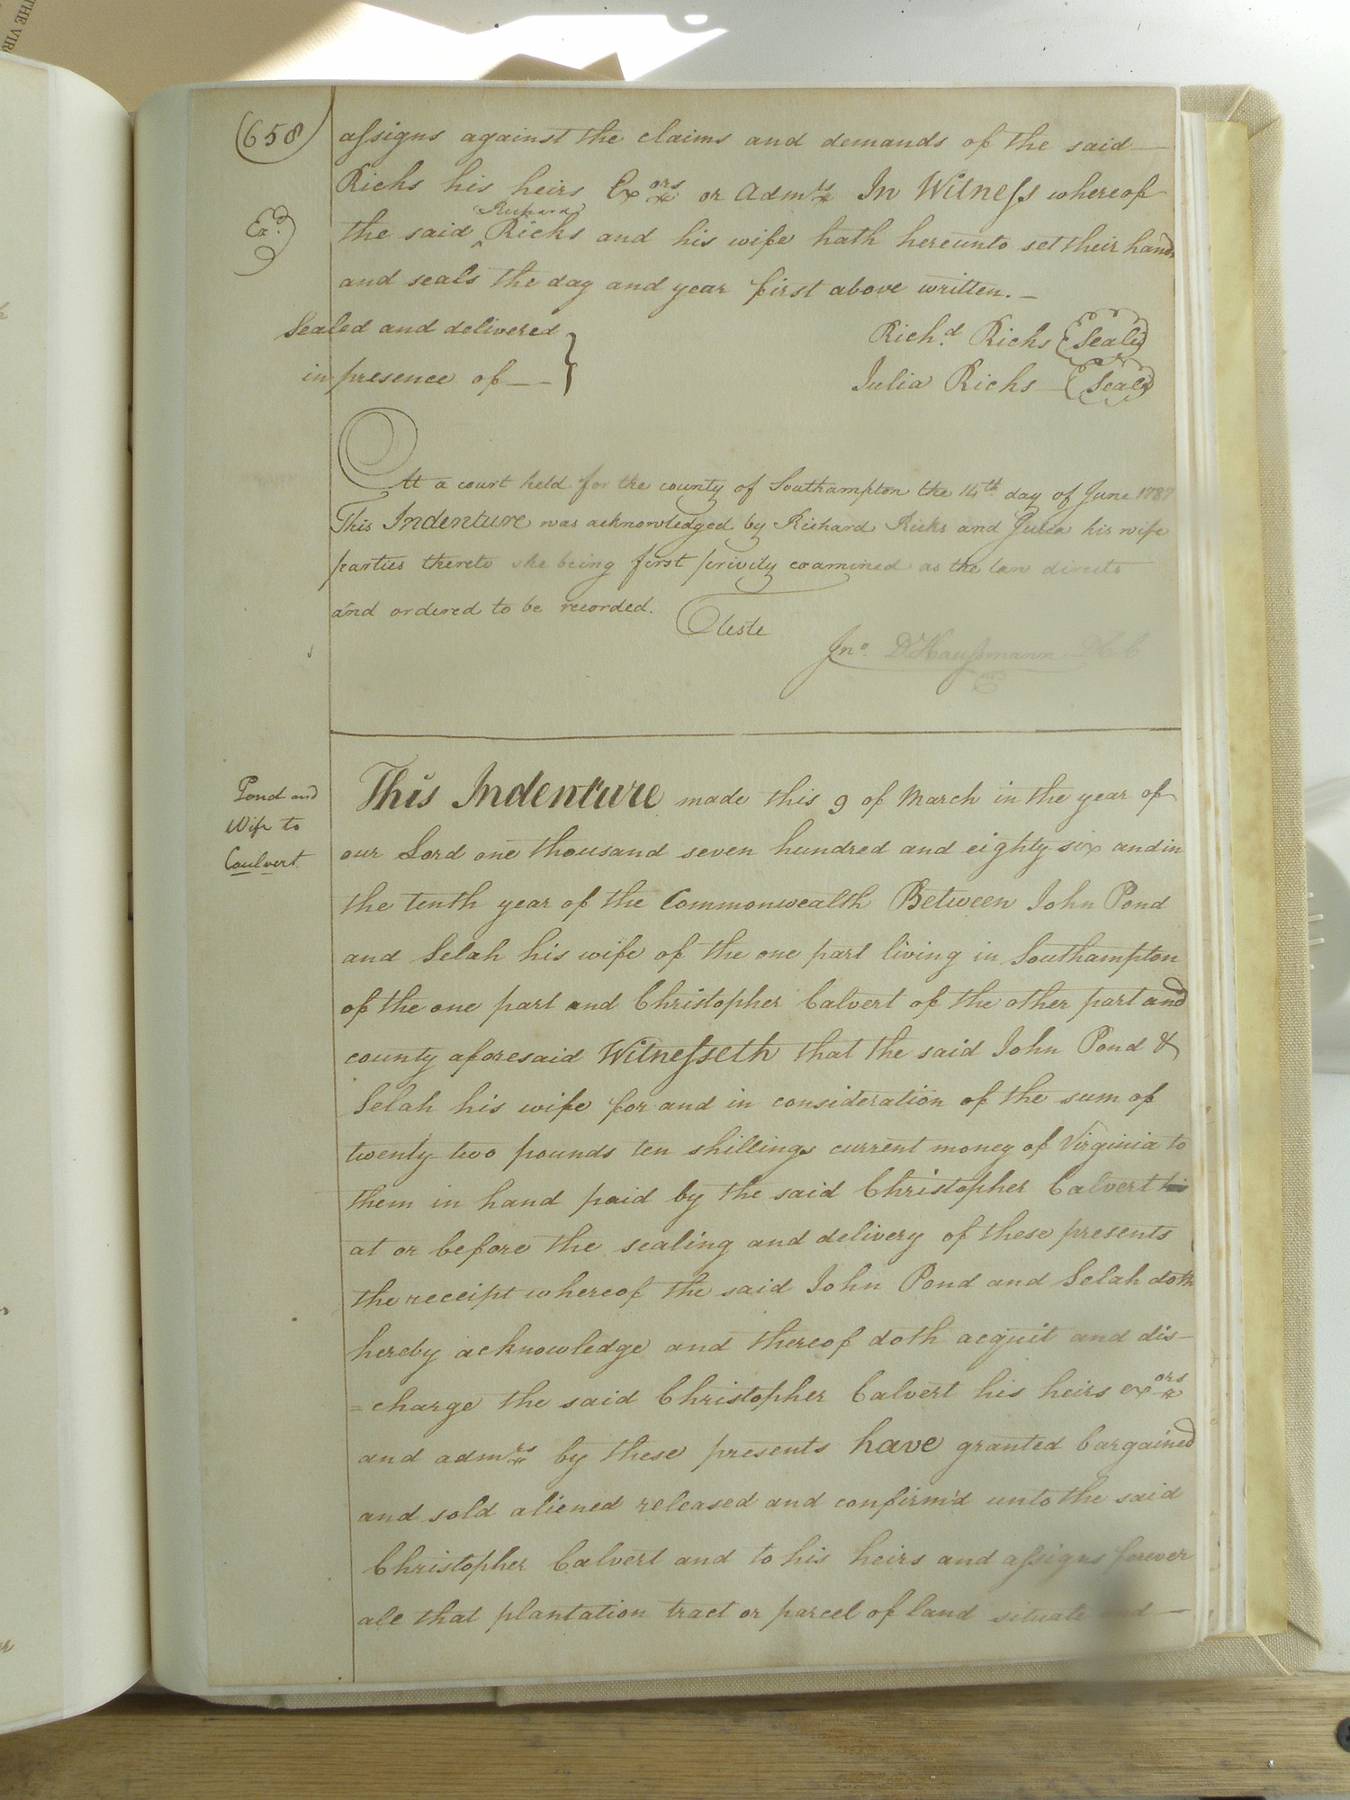 THE VIR
(658)
assigns against the claims and demands of the said—
Richs his heirs Exors or Admrs In Witness whereof
Exd.
Richard
the said ‸ Richs and his wife hath hereunto set their hands
and seals the day and year first above written.—
Sealed and delivered
in presence of——
Richd. Richs (Seal)
Julia Richs — (Seal)
At a court held for the county of Southampton the 14th day of June 1787
This Indenture was acknowledged by Richard Ricks and Julia his wife
parties thereto she being first privily examined as the law directs
and ordered to be recorded.
Teste
Jno. D'Haussmann DCC
Pond and
Wife to
Caulvert
This Indenture made this 9 of March in the year of
our Lord one thousand seven hundred and eighty six and in
the tenth year of the Commonwealth Between John Pond
and Selah his wife of the one part living in Southampton
of the one part and Christopher Calvert of the other part and
county aforesaid Witnesseth that the said John Pond &
Selah his wife for and in consideration of the sum of
twenty two pounds ten shillings current money of Virginia to
them in hand paid by the said Christopher Calvert
at or before the sealing and delivery of these presents
the receipt whereof the said John Pond and Selah doth
hereby acknowledge and thereof doth acquit and dis-
=charge the said Christopher Calvert his heirs exors
and admrs by these presents have granted bargained
and sold aliened released and confirm'd unto the said
Christopher Calvert and to his heirs and assigns forever
all that plantation tract or parcel of land situate and —